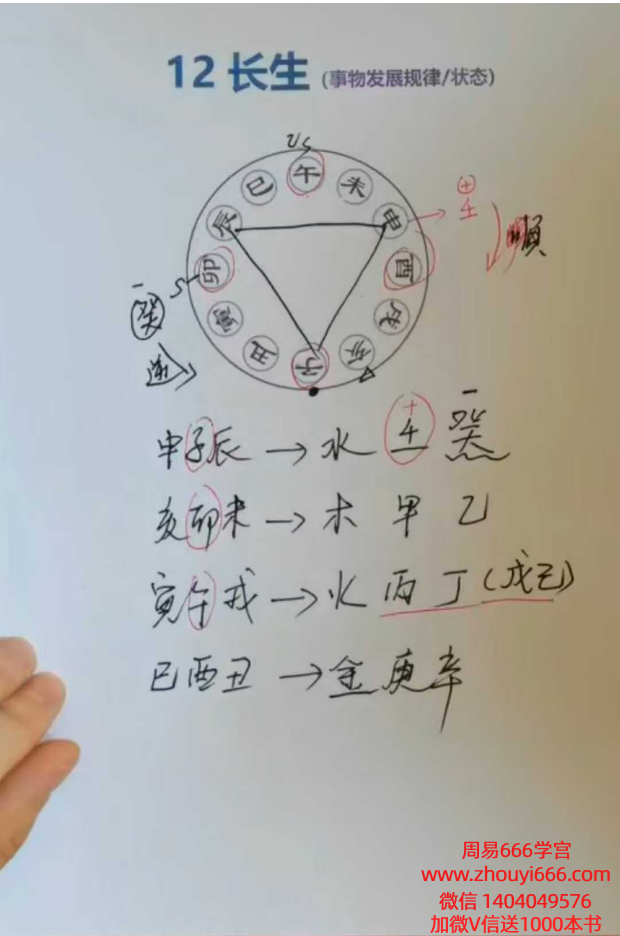 12 长生 (事物发展规律/状态)
午
巳 未
辰 申 壬
卯 酉 顺
癸
寅 戌
逆 丑 亥
子
申子辰 → 水 壬 癸
亥卯未 → 木 甲 乙
寅午戌 → 火 丙 丁 (戊己)
巳酉丑 → 金 庚 辛
周易666学宫
www.zhouyi666.com
微信 1404049576
加微V信送1000本书